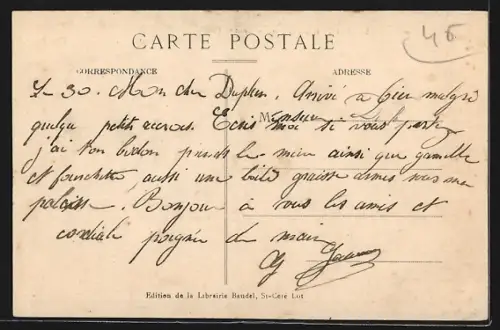 46
CARTE POSTALE
CORRESPONDANCE
ADRESSE
30. Mon cher Arrivé à malgré
quelque petits accrocs. Ecris moi si vous partez
Monsieur
j'ai ton bidon pends le mien ainsi que gamelle
et fourchette, aussi une boite graisse armes sous ma
paillasse. Bonjour à vous les amis et
cordiale poignée de main
Edition de la Librairie Baudel, St-Céré Lot